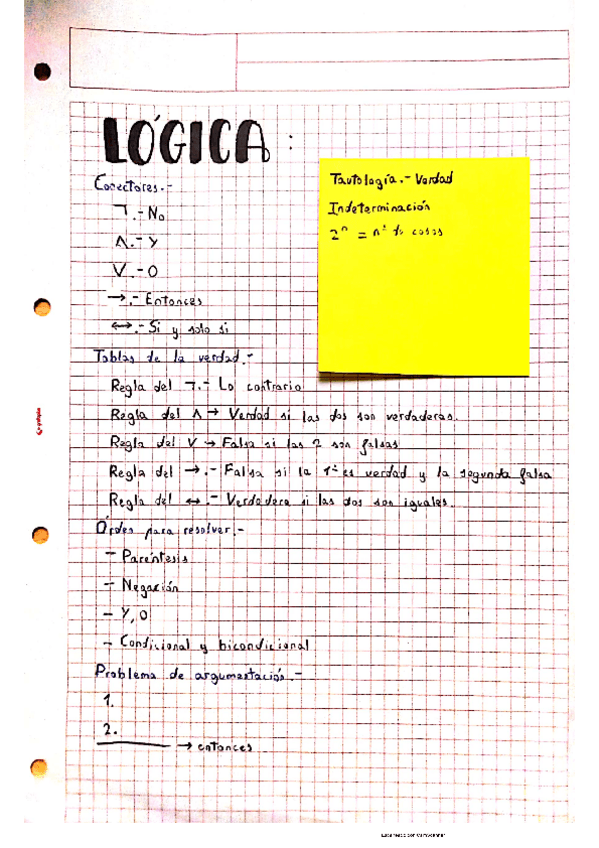 LÓGICA:
Conectores.-
¬.- No
Λ.- Y
V.- O
→.- Entonces
↔.- Si y solo si
Tablas de la verdad.-
Regla del ¬.- Lo contrario
Regla del Λ → Verdad si las dos son verdaderas.
Regla del V → Falsa si las 2 son falsas
Regla del →.- Falsa si la 1ª es verdad y la segunda falsa
Regla del ↔.- Verdadera si las dos son iguales.
Órden para resolver.-
- Paréntesis
- Negación
- Y, O
- Condicional y bicondicional
Problema de argumentación.-
1.
2.
→ entonces
Tautología.- Verdad
Indeterminación
2ⁿ = nº de casos